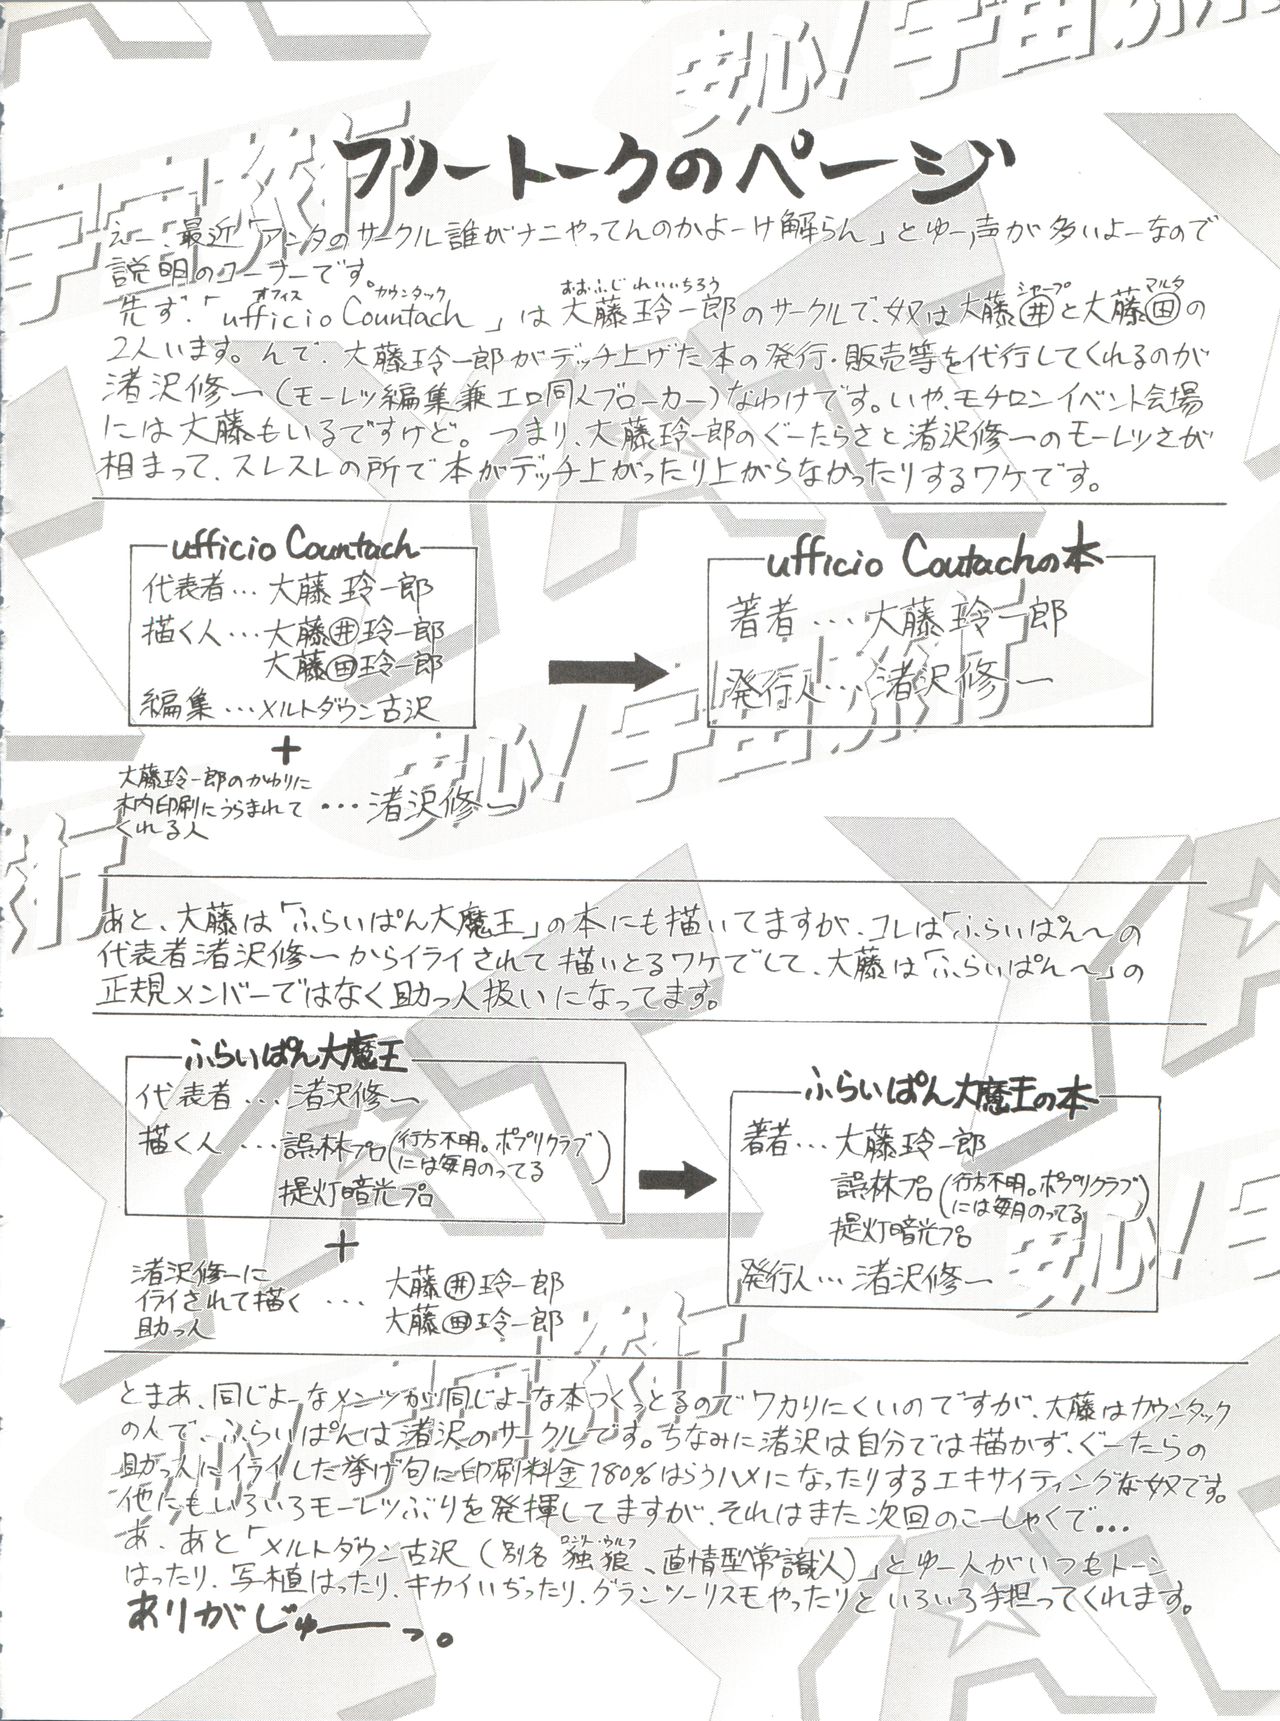 フリートークのページ
えー、最近「アンタのサークル誰がナニやってんのかよーけ解らん」とゆー、声が多いよーなので
説明のコーナーです。
オフィス カウンタック おおふじれいいちろう シャープ マルタ
先ず、「ufficio Countach」は大藤玲一郎のサークルで、奴は大藤㊇と大藤㊉の
2人います。んで、大藤玲一郎がデッチ上げた本の発行・販売等を代行してくれるのが
渚沢修一(モーレツ編集兼エロ同人ブローカー)なわけです。いや、モチロンイベント会場
には大藤もいるですけど。つまり、大藤玲一郎のぐーたらさと渚沢修一のモーレツさが
相まって、スレスレの所で本がデッチ上がったり上がらなかったりするワケです。
ufficio Countach
代表者…大藤玲一郎
描く人…大藤井玲一郎
大藤田玲一郎
編集…メルトダウン古沢
+
大藤玲一郎のかわりに
木内印刷にうらまれて
くれる人
…渚沢修一
ufficio Coutachの本
著者…大藤玲一郎
発行人…渚沢修一
あと、大藤は「ふらいぱん大魔王」の本にも描いてますが、コレは「ふらいぱん〜の
代表者渚沢修一からイライされて描いとるワケでして、大藤は「ふらいぱん〜」の
正規メンバーではなく助っ人扱いになってます。
ふらいぱん大魔王
代表者…渚沢修一
描く人…誤林プロ(行方不明。ポプリクラブ
には毎月のってる)
提灯暗光プロ
+
渚沢修一に
イライされて描く…
助っ人
大藤井玲一郎
大藤田玲一郎
ふらいぱん大魔王の本
著者…大藤玲一郎
誤林プロ(行方不明。ポプリクラブ
には毎月のってる)
提灯暗光プロ
発行人…渚沢修一
とまあ、同じよーなメンツが同じよーな本つくっとるのでワカりにくいのですが、大藤はカウンタック
の人で、ふらいぱんは渚沢のサークルです。ちなみに渚沢は自分では描かず、ぐーたらの
助っ人にイライした挙げ句に印刷料金180%はらうハメになったりするエキサイティングな奴です。
他にもいろいろモーレツぶりを発揮してますが、それはまた次回のこーしゃくで…
あ、あと「メルトダウン古沢(別名 独狼、直情型常識人)」とゆー人がいつもトーン
ロンリー・ウルフ
はったり、写植はったり、キカイいぢったり、グランツーリスモやったりといろいろ手担ってくれます。
ありがじゅーっ。
安心!宇宙旅行
YAT